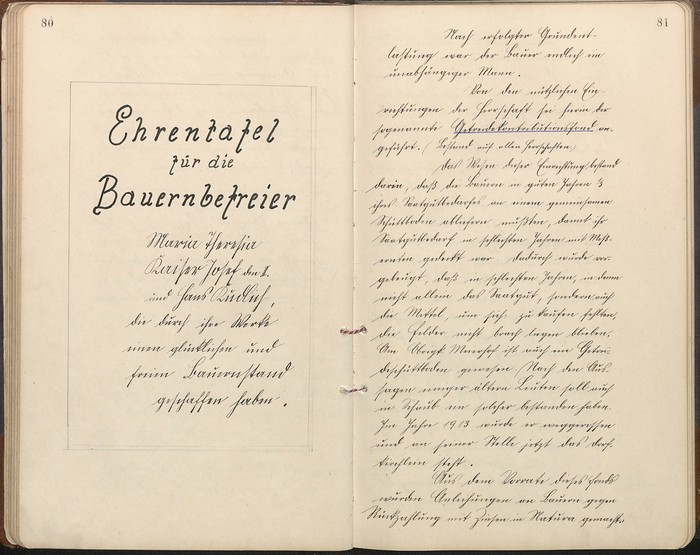 80
Ehrentafel
für die
Bauernbefreier
Maria Theresia
Kaiser Josef der II.
und Hans Kudlich,
die durch ihre Werke
einen glücklichen und
freien Bauernstand
geschaffen haben.
81
Nach erfolgter Grundent-
lastung war der Bauer endlich ein
unabhängiger Mann.
Von den nützlichen Ein-
richtungen der Herrschaft sei hierin der
sogenannte Getreidekontributionsfond an-
geführt. (Bestand auf allen Herrschaften.)
Das Wesen dieser Einrichtung bestand
darin, daß die Bauern in guten Jahren
ihres Saatgutbedarfes an einem gemeinsamen
Schüttboden abliefern mußten, damit ihr
Saatgutbedarf in schlechten Jahren mit Miß-
ernten gedeckt war. Dadurch wurde vor-
gebeugt, daß in schlechten Jahren, in denen
nicht allein das Saatgut, sondern auch
die Mittel, um sich zu kaufen fehlten,
die Felder nicht brach liegen blieben.
Am Meierhof ist auch ein Getrei-
deschüttboden gewesen. Nach den Aus-
sagen einiger älteren Leuten soll auch
in Schönb ein solcher bestanden haben.
Im Jahre 1913 wurde er weggerissen
und an seiner Stelle jetzt das Dorf-
kirchlein steht.
Aus dem Vorrate dieses Fonds
wurden Anleihungen an Bauern gegen
Rückzahlung mit Zinsen in Natura gemacht.